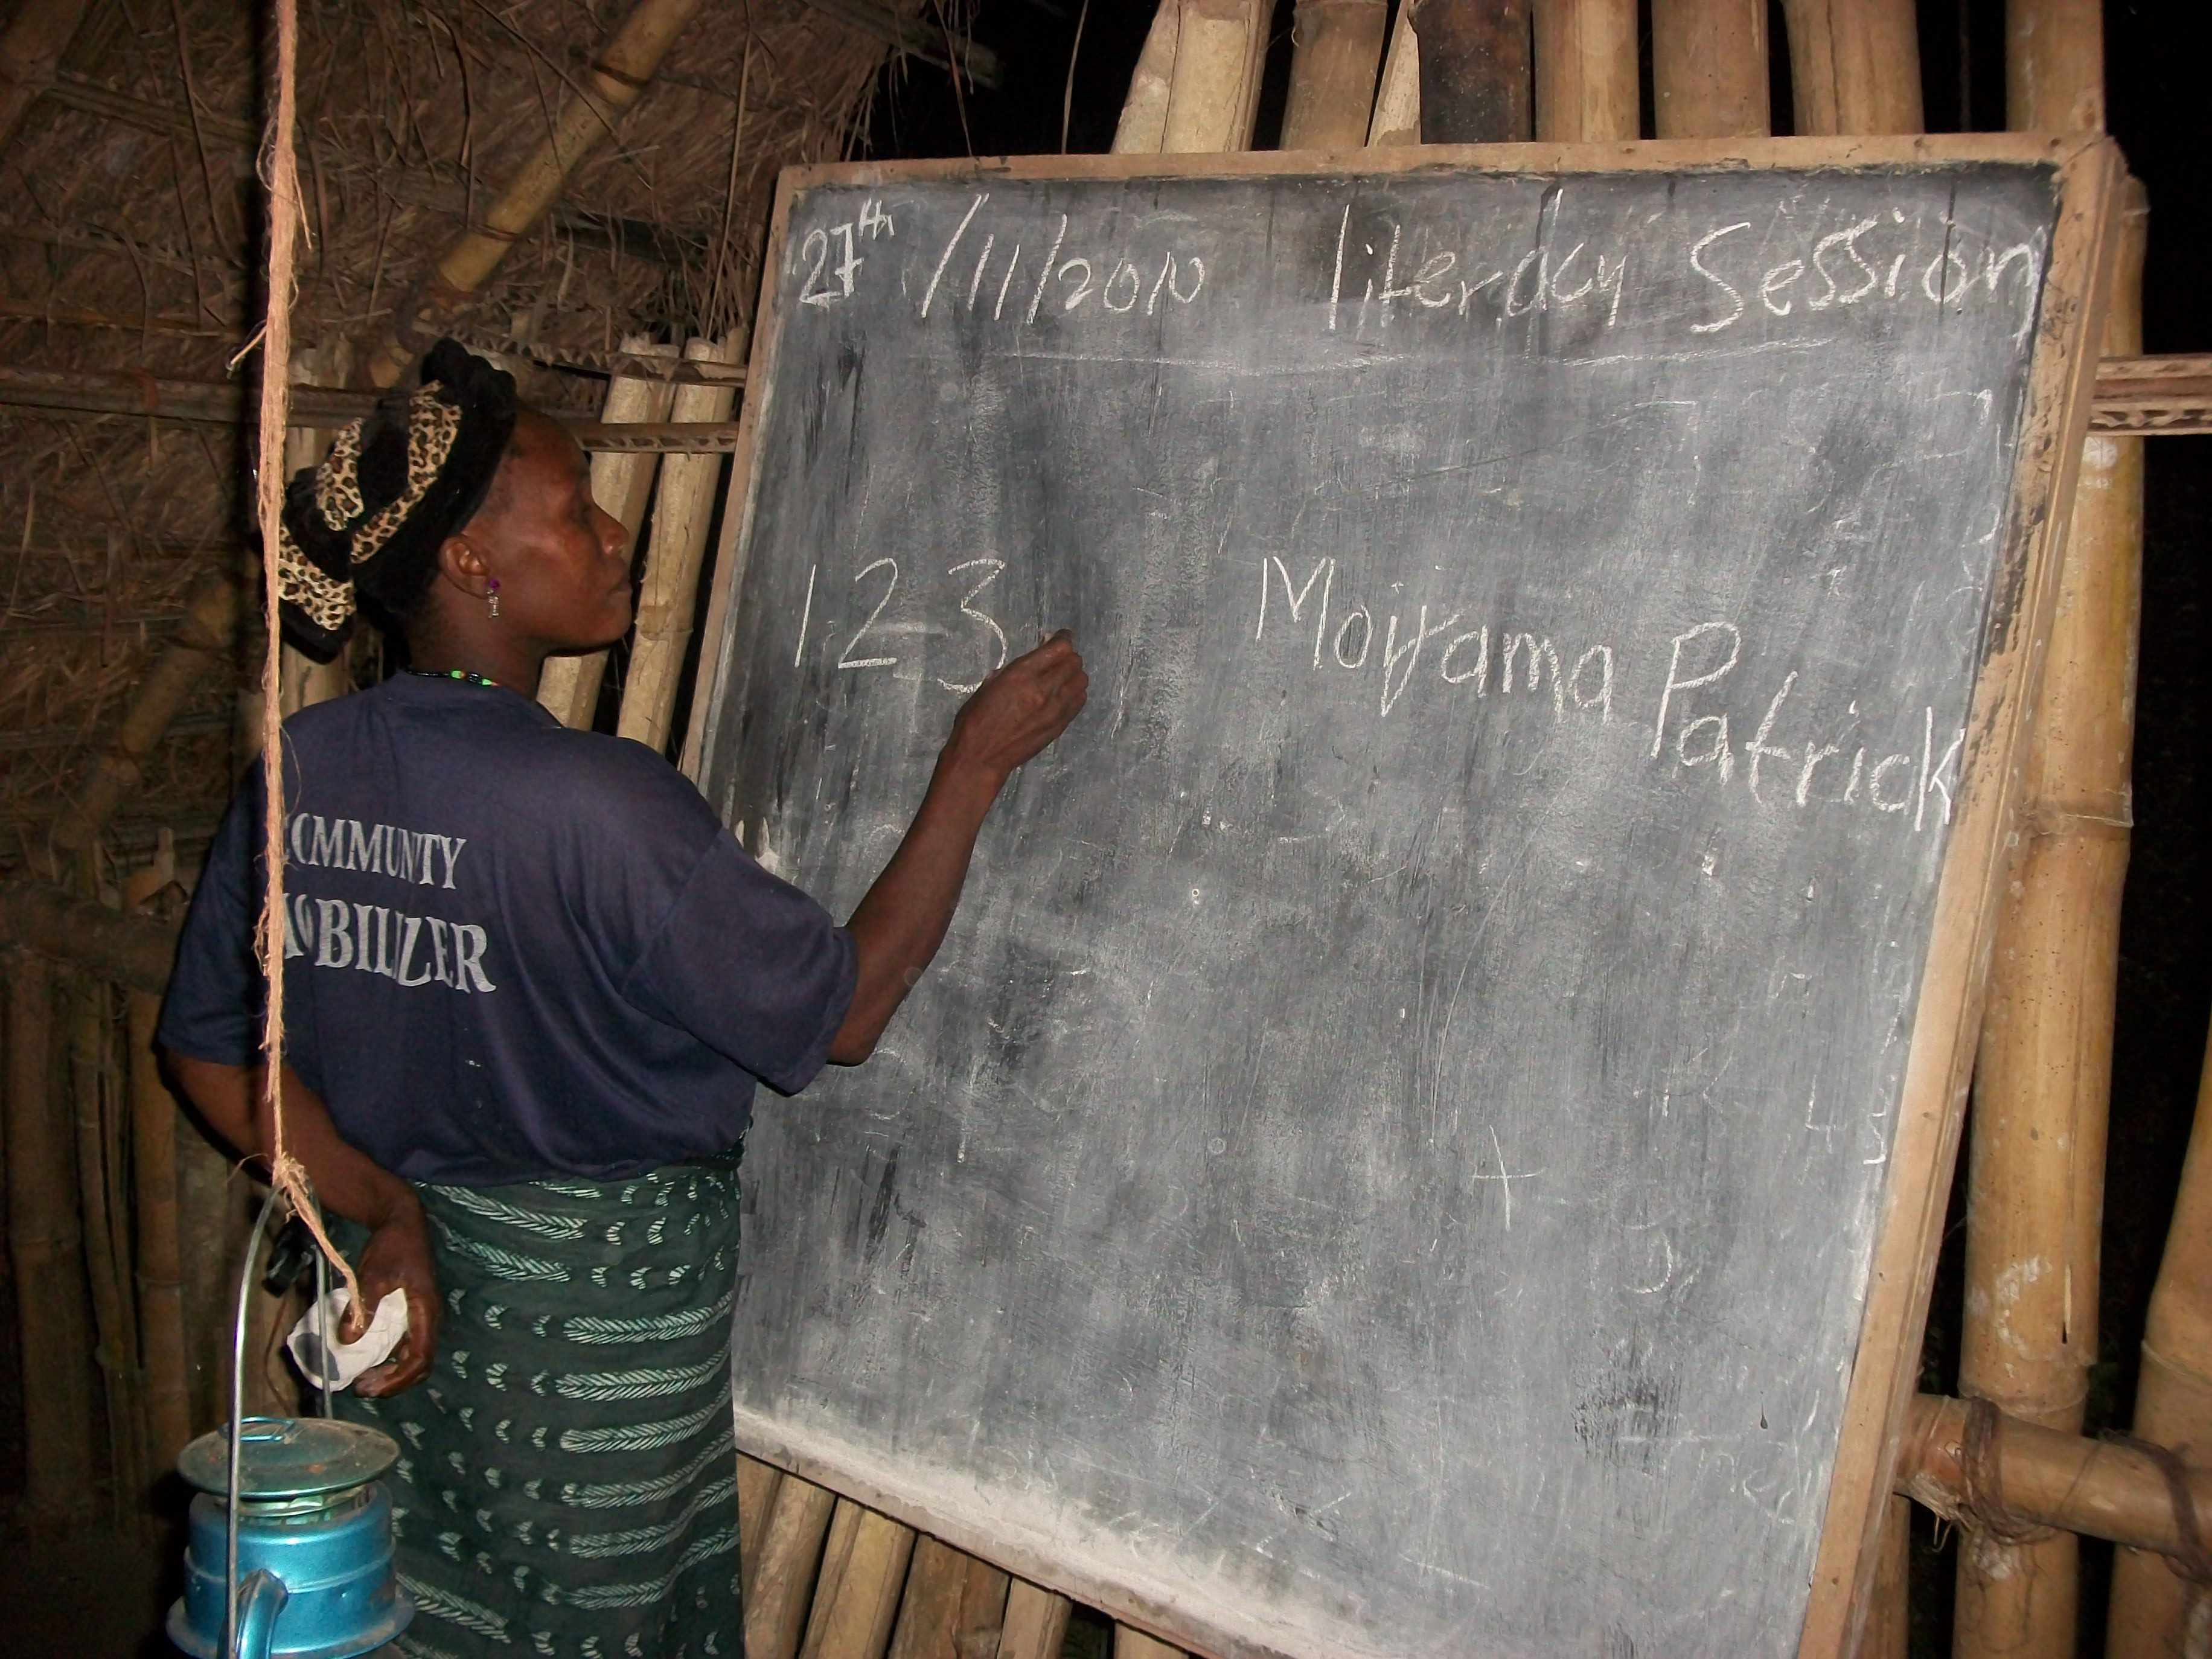 27th /11/2010 literacy Session
1 2 3
Moiyama Patrick
COMMUNITY
MOBILIZER